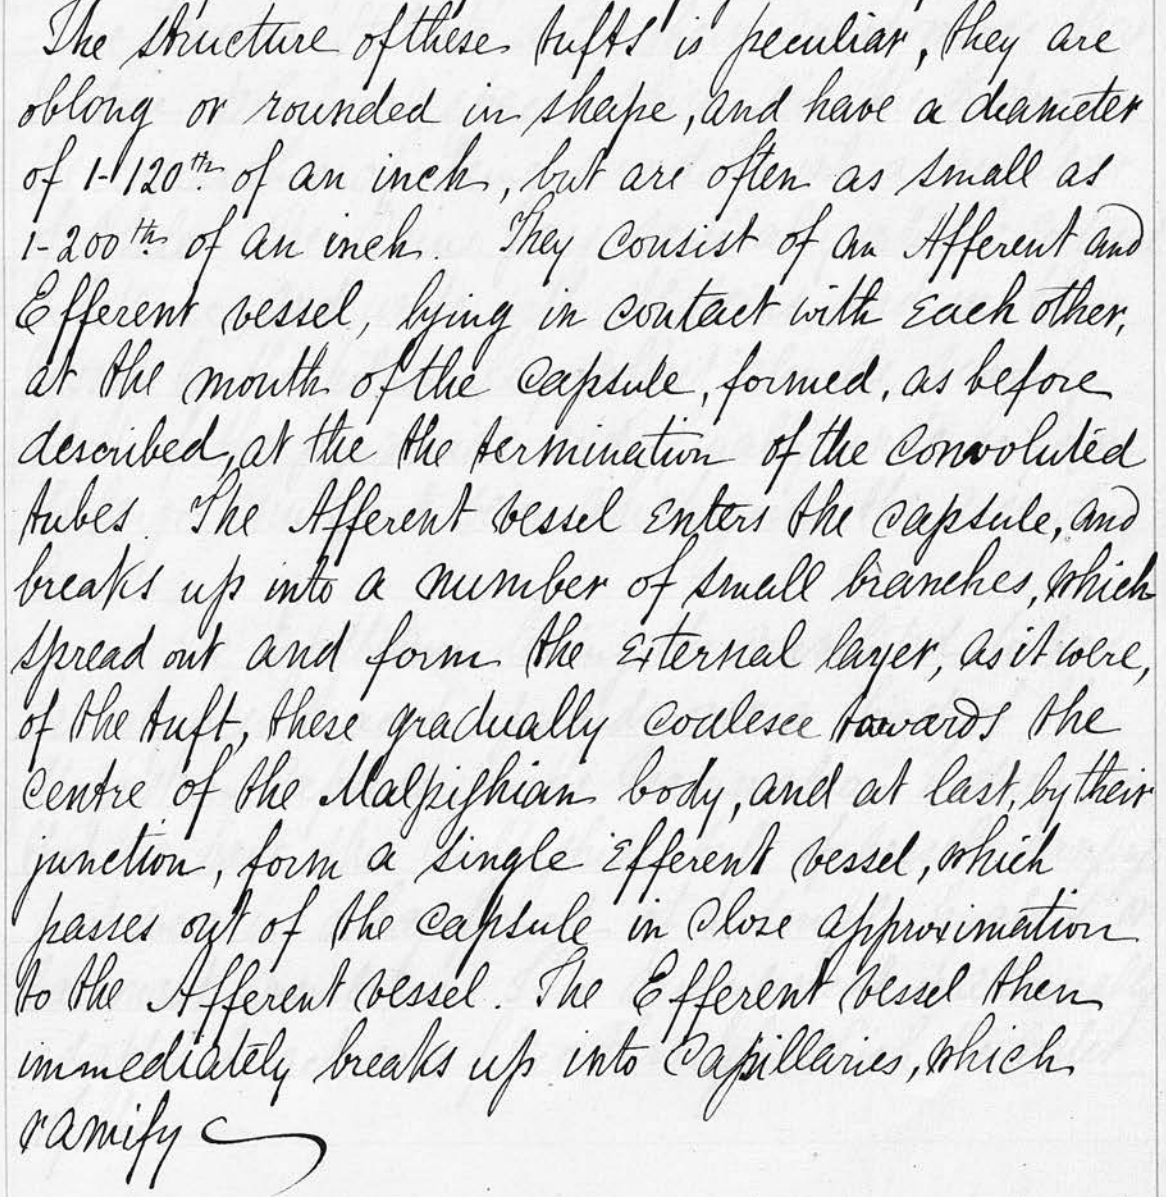 The structure of these tufts is peculiar, they are
oblong or rounded in shape, and have a diameter
of 1-120th. of an inch, but are often as small as
1-200th. of an inch. They consist of an Afferent and
Efferent vessel, lying in contact with each other,
at the mouth of the capsule, formed, as before
described, at the the termination of the convoluted
tubes. The Afferent vessel enters the capsule, and
breaks up into a number of small branches, which
spread out and form the external layer, as it were,
of the tuft, these gradually coalesce towards the
centre of the Malpighian body, and at last, by their
junction, form a single Efferent vessel, which
passes out of the capsule in close approximation
to the Afferent vessel. The Efferent vessel then
immediately breaks up into capillaries, which
ramify